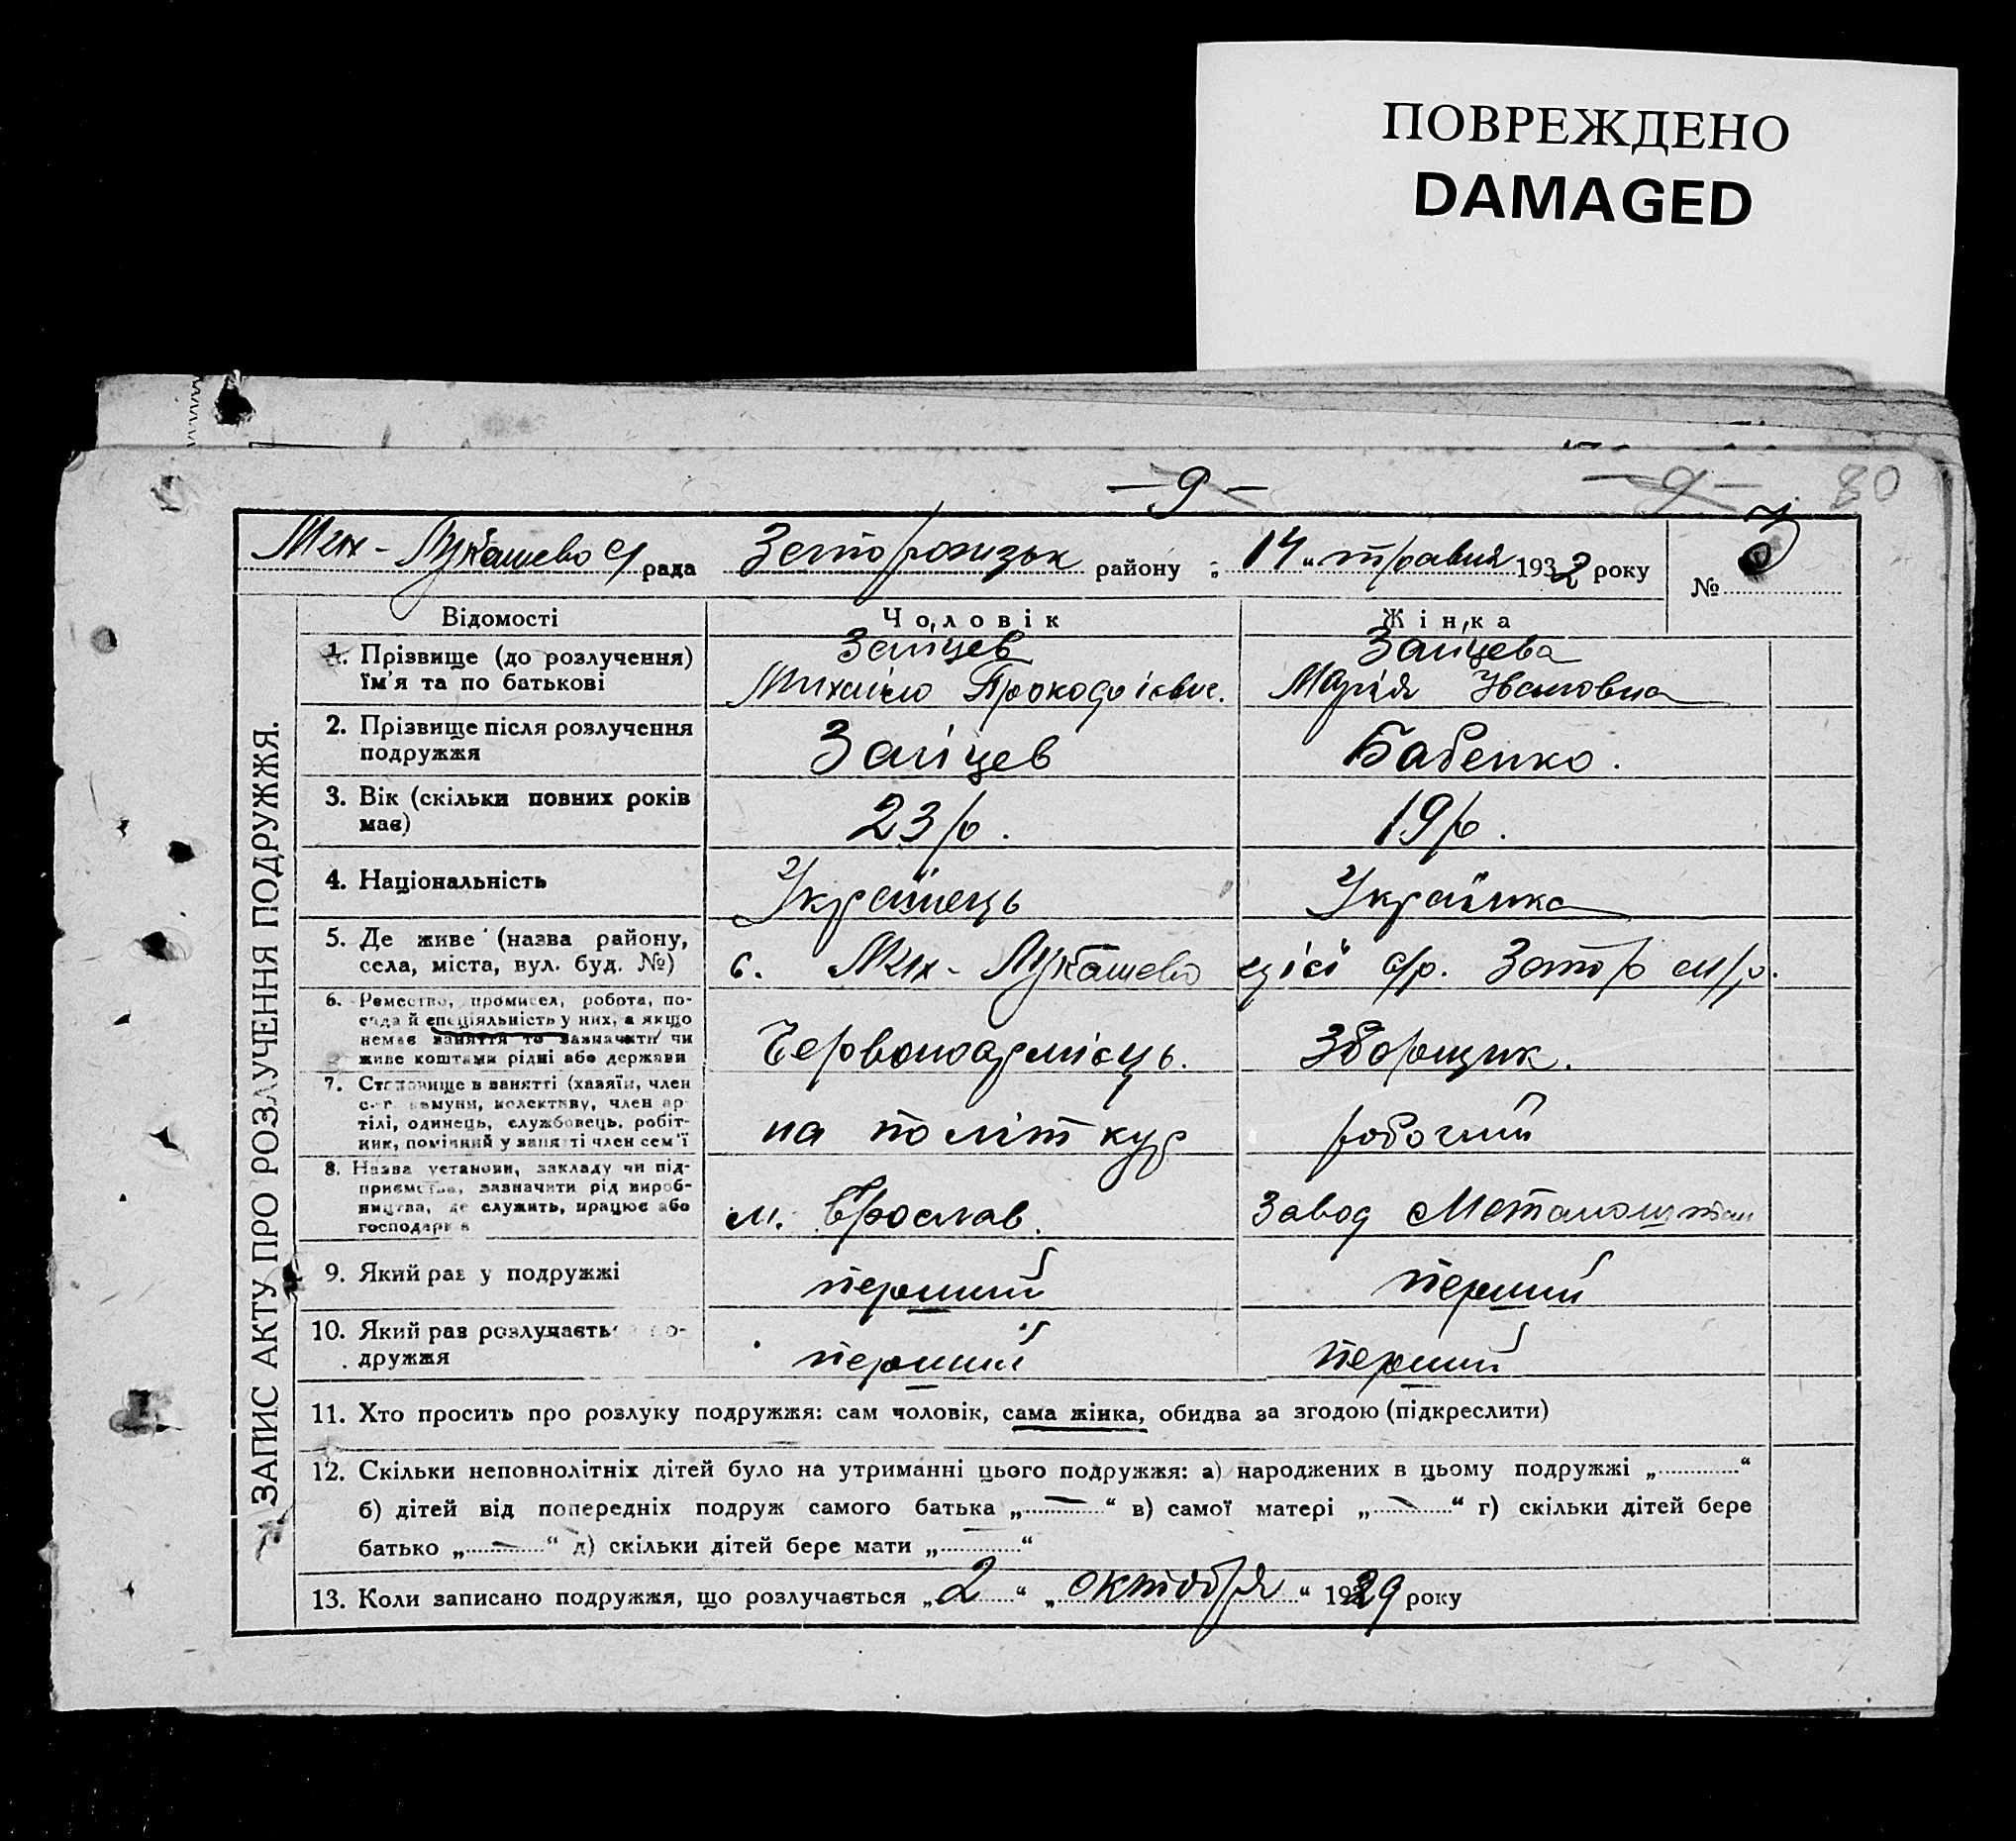 ПОВРЕЖДЕНО
DAMAGED
— 9 —
— 9 — 80
Мих - Лукашево с/ рада Запоріжзьк району „ 14 “ травня 1932 року
№
Відомості Чоловік Жінка
1. Прізвище (до розлучення) їм'я та по батькові
Заіцев
Михаіло Прокофіевич.
Заіцева
Марія Ивановна
2. Прізвище після розлучення подружжя
Заіцев
Бабенко.
3. Вік (скільки повних років має)
23 р.
19 р.
4. Національність
Українець
Українка
5. Де живе (назва району, села, міста, вул. буд. №)
с. Мих - Лукашево цієї с/р. Запор м/р.
6. Ремество, промисел, робота, посада й спеціяльність у них, а якщо немає заняття то зазначити чи живе коштами рідні або держави
Червоноармієць.
Зборщик.
7. Становище в занятті (хазяїн, член с.-г. комуни, колективу, член артілі, одинець, службовець, робітник, помічний у занятті член сем'ї
на політ кур
робочий
8. Назва установи, закладу чи підприємства, зазначити рід виробництва, де служить, працює або господарює
м. Ярослав.
Завод
9. Який раз у подружжі
перший
перший
10. Який раз розлучається подружжя
перший
перший
11. Хто просить про розлуку подружжя: сам чоловік, сама жінка, обидва за згодою (підкреслити)
12. Скільки неповнолітніх дітей було на утриманні цього подружжя: а) народжених в цьому подружжі „ “
б) дітей від попередніх подруж самого батька „ — “ в) самої матері „ — “ г) скільки дітей бере
батько „ — “ д) скільки дітей бере мати „ “
13. Коли записано подружжя, що розлучається „ 2 “ „ октября “ 1929 року
ЗАПИС АКТУ ПРО РОЗЛУЧЕННЯ ПОДРУЖЖЯ.